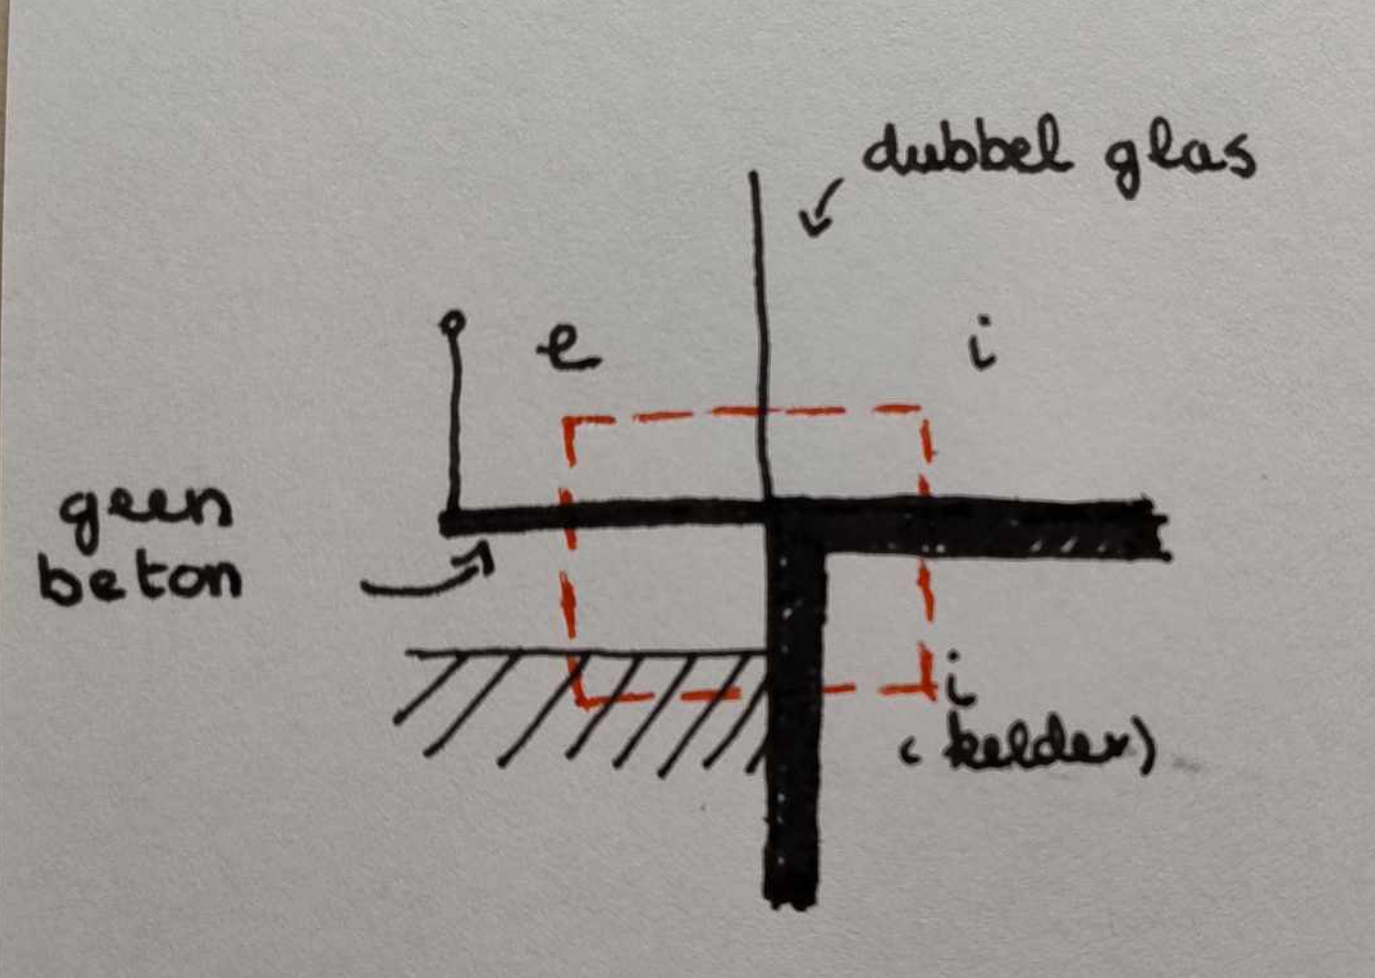 dubbel glas
e
i
geen
beton
i
(kelder)